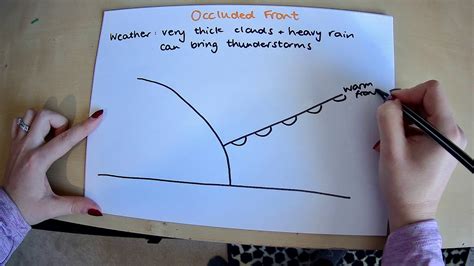 Occluded Front
Weather: very thick clouds + heavy rain
can bring thunderstorms
warm
front